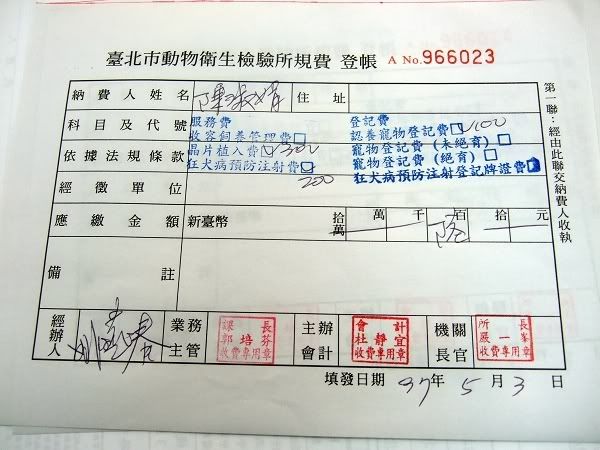 臺北市動物衛生檢驗所規費 登帳 A No.966023
納費人姓名 陳淑 住址
科目及代號 服務費 登記費
收容飼養管理費 認養寵物登記費 100
依據法規條款 晶片植入費 300 寵物登記費(未絕育)
狂犬病預防注射費 寵物登記費(絕育)
200 狂犬病預防注射登記牌證費
經徵單位
應繳金額 新臺幣 拾萬 萬 千 陸 百 拾 元
備註
經辦人 業務主管 課長 郭培芬 收費專用章 主辦會計 會計 杜靜宜 收費專用章 機關長官 所長 嚴一峯 收費專用章
填發日期 97年 5月 3日
第一聯:經由此聯交納費人收執